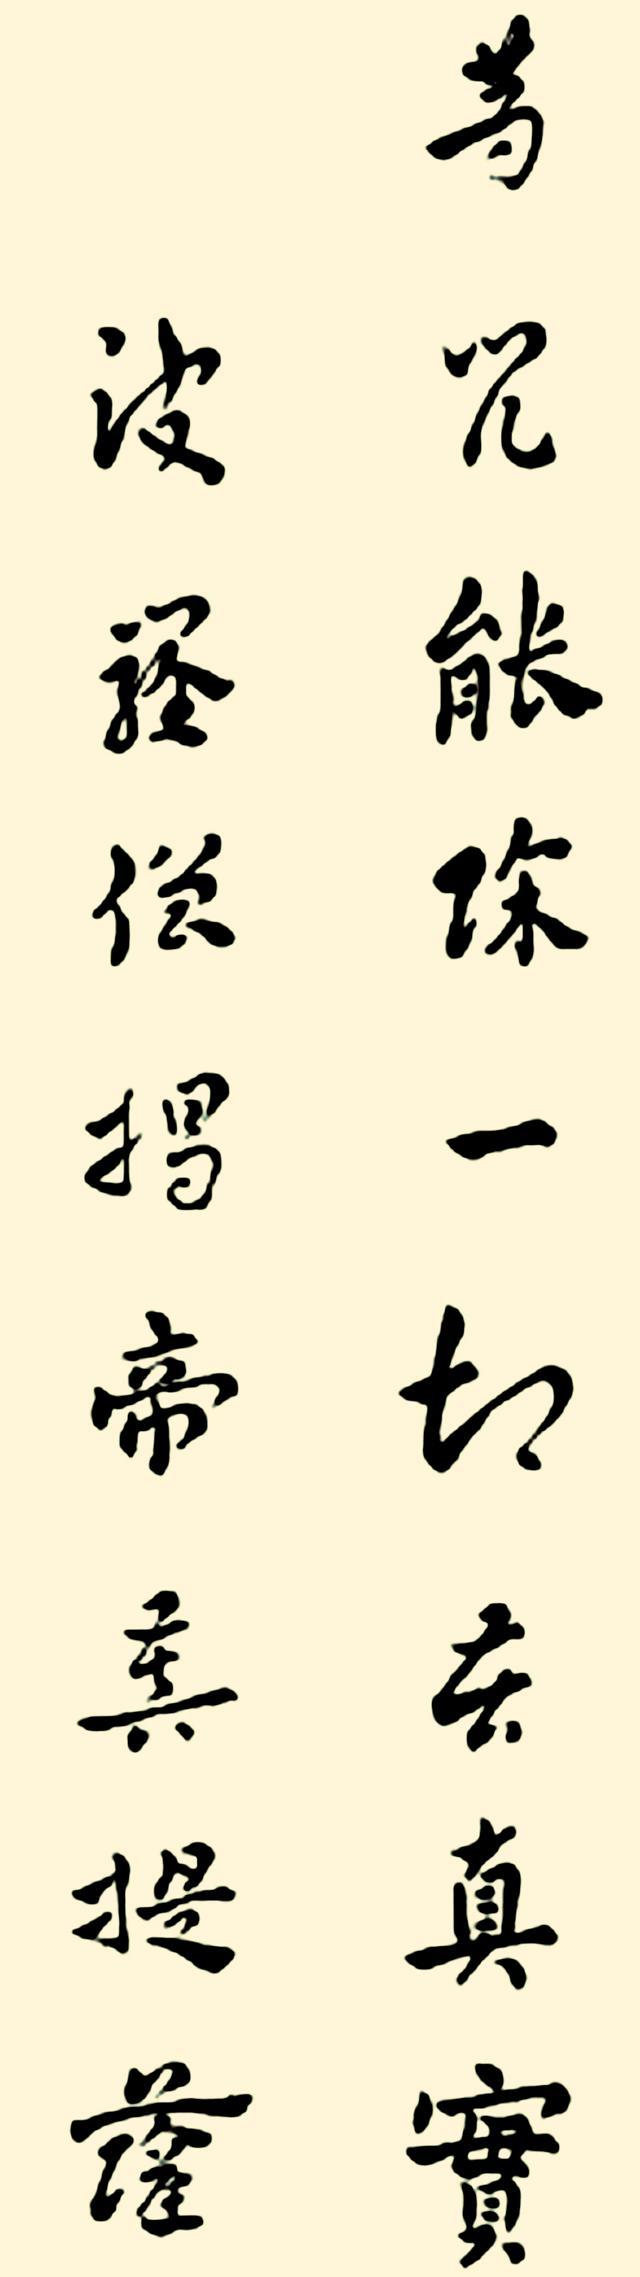 等咒能除一切苦真實
波羅僧揭帝菩提薩